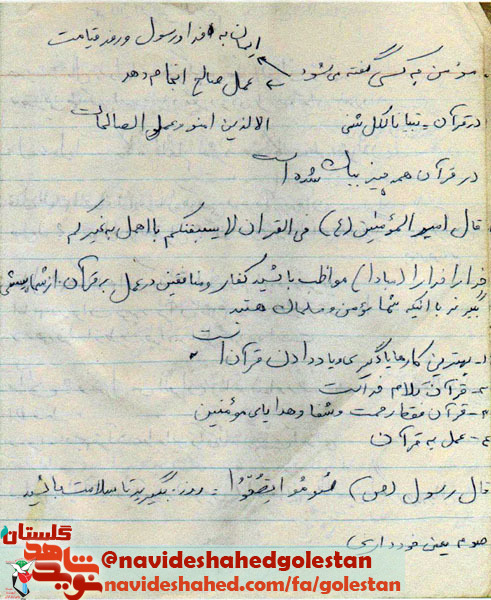 ایمان به خدا و رسول و روز قیامت
مؤمن به کسی گفته می‌شود
عمل صالح انجام دهد
در قرآن = تبیانا لکل شئی
الا الذین امنو و عملو الصالحات
در قرآن همه چیز بیان شده است
قال امیر المؤمنین (ع) فی القران لا یسبقنکم بالعمل به غیرکم
خدا را خدا را (مبادا) مواظب باشید کفار و منافقین در عمل به قرآن از شما پیشی
بگیرند با اینکه شما مؤمن و مسلمان هستید
۱- بهترین کارها یادگیری و یاد دادن قرآن است
۲- قرآن کلام خداست
۳- قرآن فقط رحمت و شفا و هدایای مؤمنین
۴- عمل به قرآن
قال رسول (ص) صُومُوا تَصِحُّوا = روزه بگیرید تا سلامت باشید
صوم یعنی خودداری
نوید شاهد گلستان
@navideshahedgolestan
navideshahed.com/fa/golestan